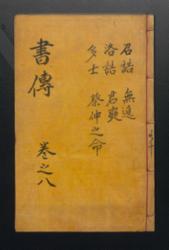 書傳 卷之八
召誥 無逸
洛誥 君奭
多士 蔡仲之命